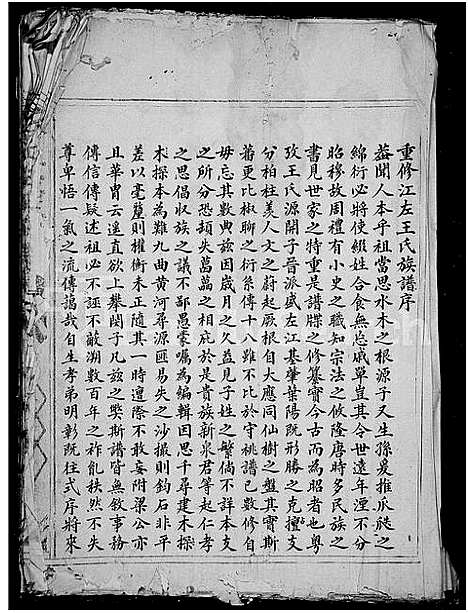 重修江左王氏族譜序
蓋聞人本乎祖當思水木之根源子又生孫爰推瓜瓞之
綿衍必將使綴姓合食無忘戚單豈其令世遠年湮不分
昭移故周禮有小史之職知宗法之攸隆唐時多民族之
書見世家之特重是譜牒之修纂實今古而為昭者也粵
攷王氏源開子晉派盛左江基肇葉陽既形勝之克擅支
分柏柱美人文之蔚起厥根自大應同仙樹之盤其實斯
蕃更比椒聊之衍箓傳十八雖不比於守桃譜已數修自
毋忘其數典茲因歲月之久益見子姓之繁倘不詳本支
之所分恐頻失萬萬之相庇於是貴族新泉君等起仁孝
之思倡收族之議不鄙愚蒙囑為編輯因思千尋建木探
本為難九曲黄河尋源匪易失之沙撮則鈞石非平
差以毫釐則權衡未正隨其一時遭際不敢妄附梁公亦
且華胄云遙直欲上攀閔子凡茲之弊斯譜皆無敘事務
傳信傳疑述祖必不誣不敵溯數百年之祚胤秩然不失
尊卑悟一氣之流傳謁哉自生孝弟明彰既往式序將來